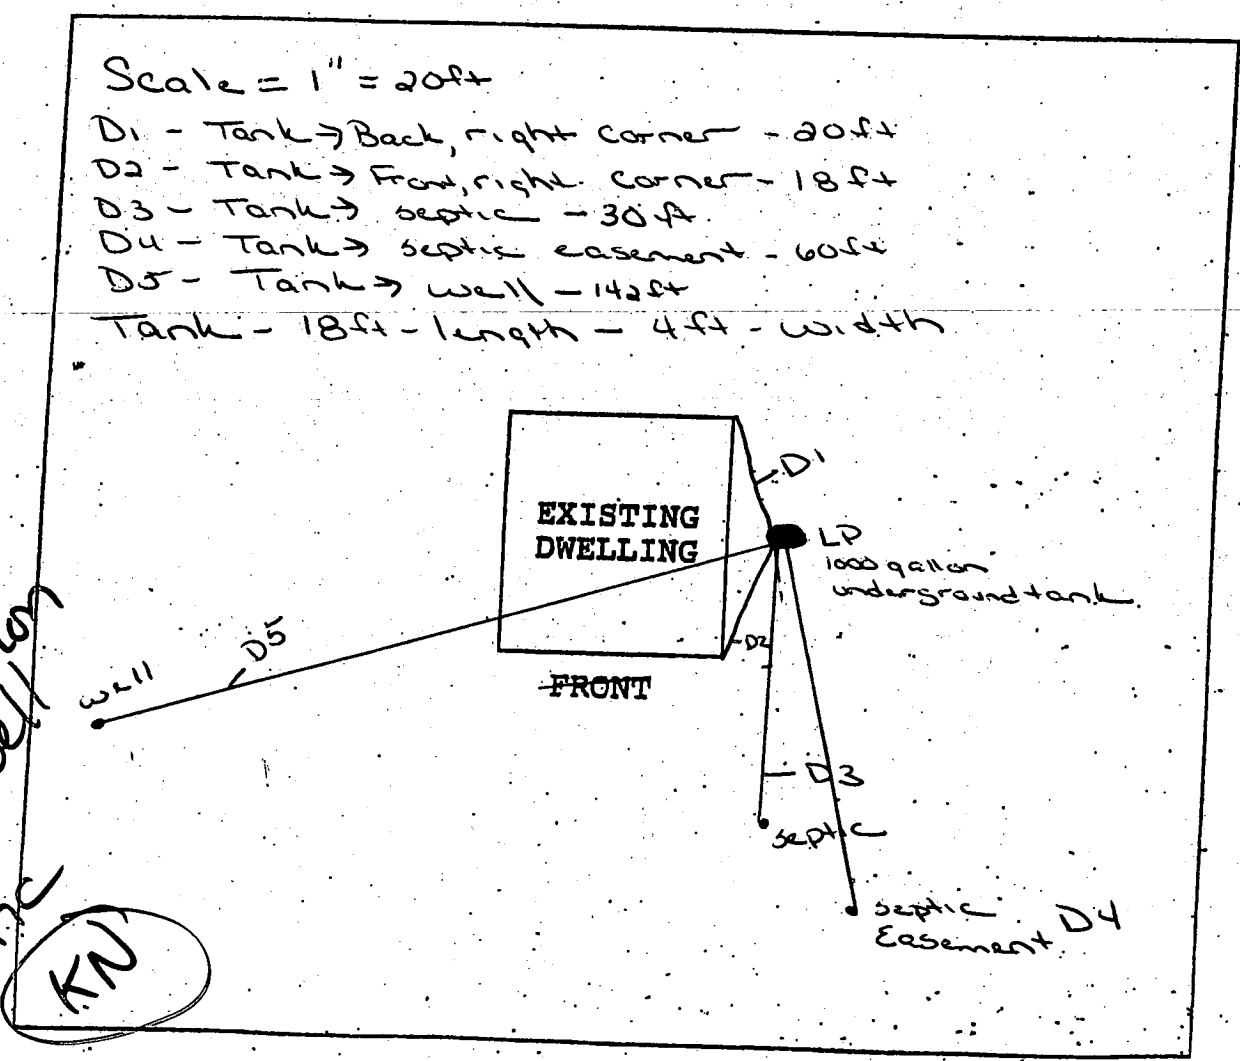 Scale = 1" = 20ft
D1 - Tank → Back, right corner - 20ft
D2 - Tank → Front, right. corner - 18ft
D3 - Tank → septic - 30ft.
D4 - Tank → septic easement - 60ft
D5 - Tank → well - 142ft
Tank - 18ft - length - 4ft - width
D1
EXISTING
DWELLING
LP
1000 gallon
underground tank.
D2
D5
well
FRONT
D3
septic
septic
Easement.
D4
KN